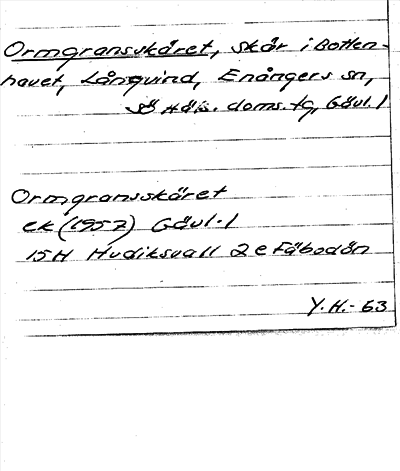 Ormgransskäret, skär i Botten-
havet, Långvind, Enångers sn,
sö Häls. doms. tg, Gävl. l
Ormgransskäret
ek (1957) Gävl. l
15H Hudiksvall 2e Fäbodön
Y.H.- 63